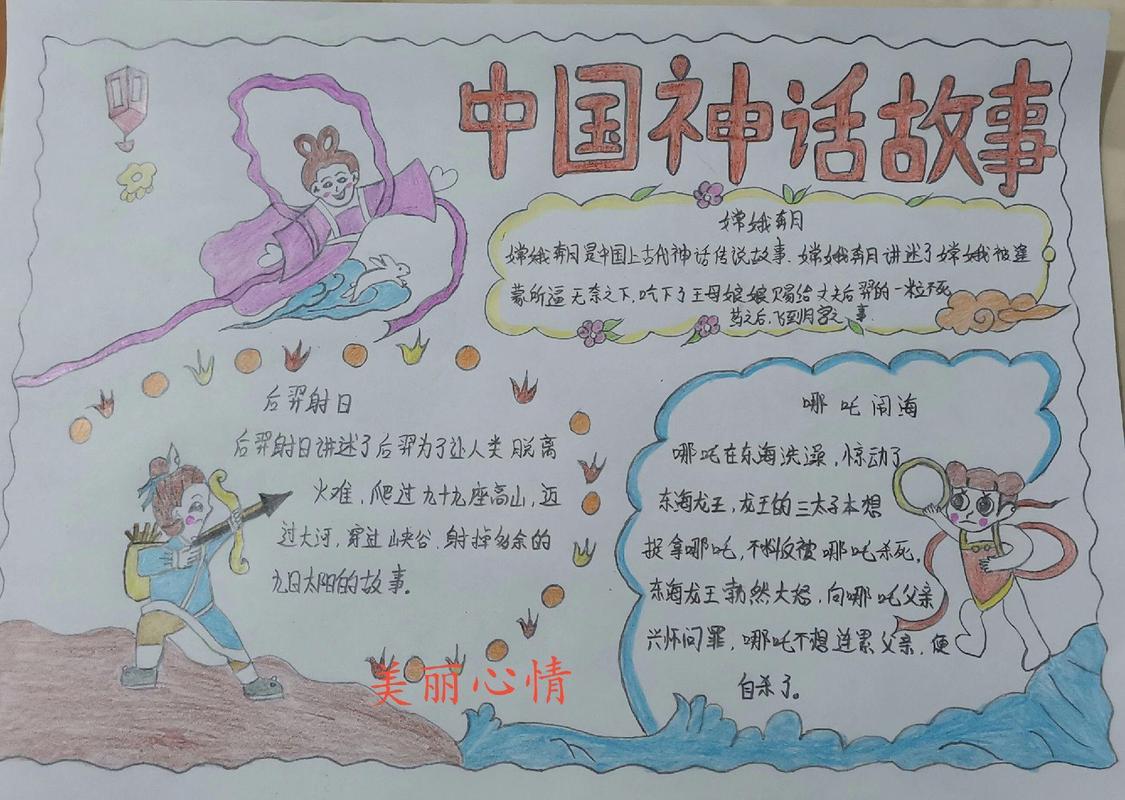 中国神话故事
嫦娥奔月
嫦娥奔月是中国上古代神话传说故事.嫦娥奔月讲述了嫦娥被逢
蒙所逼无奈之下,吃下了王母娘娘赐给丈夫后羿的一粒不死
药之后,飞到月宫之事.
后羿射日
后羿射日讲述了后羿为了让人类脱离
火难,爬过九十九座高山,迈
过大河,穿过峡谷.射掉多余的
九日太阳的故事。
哪吒闹海
哪吒在东海洗澡,惊动了
东海龙王,龙王的三太子本想
捉拿哪吒,不料反被哪吒杀死,
东海龙王勃然大怒,向哪吒父亲
兴师问罪,哪吒不想连累父亲,便
自杀了。
美丽心情